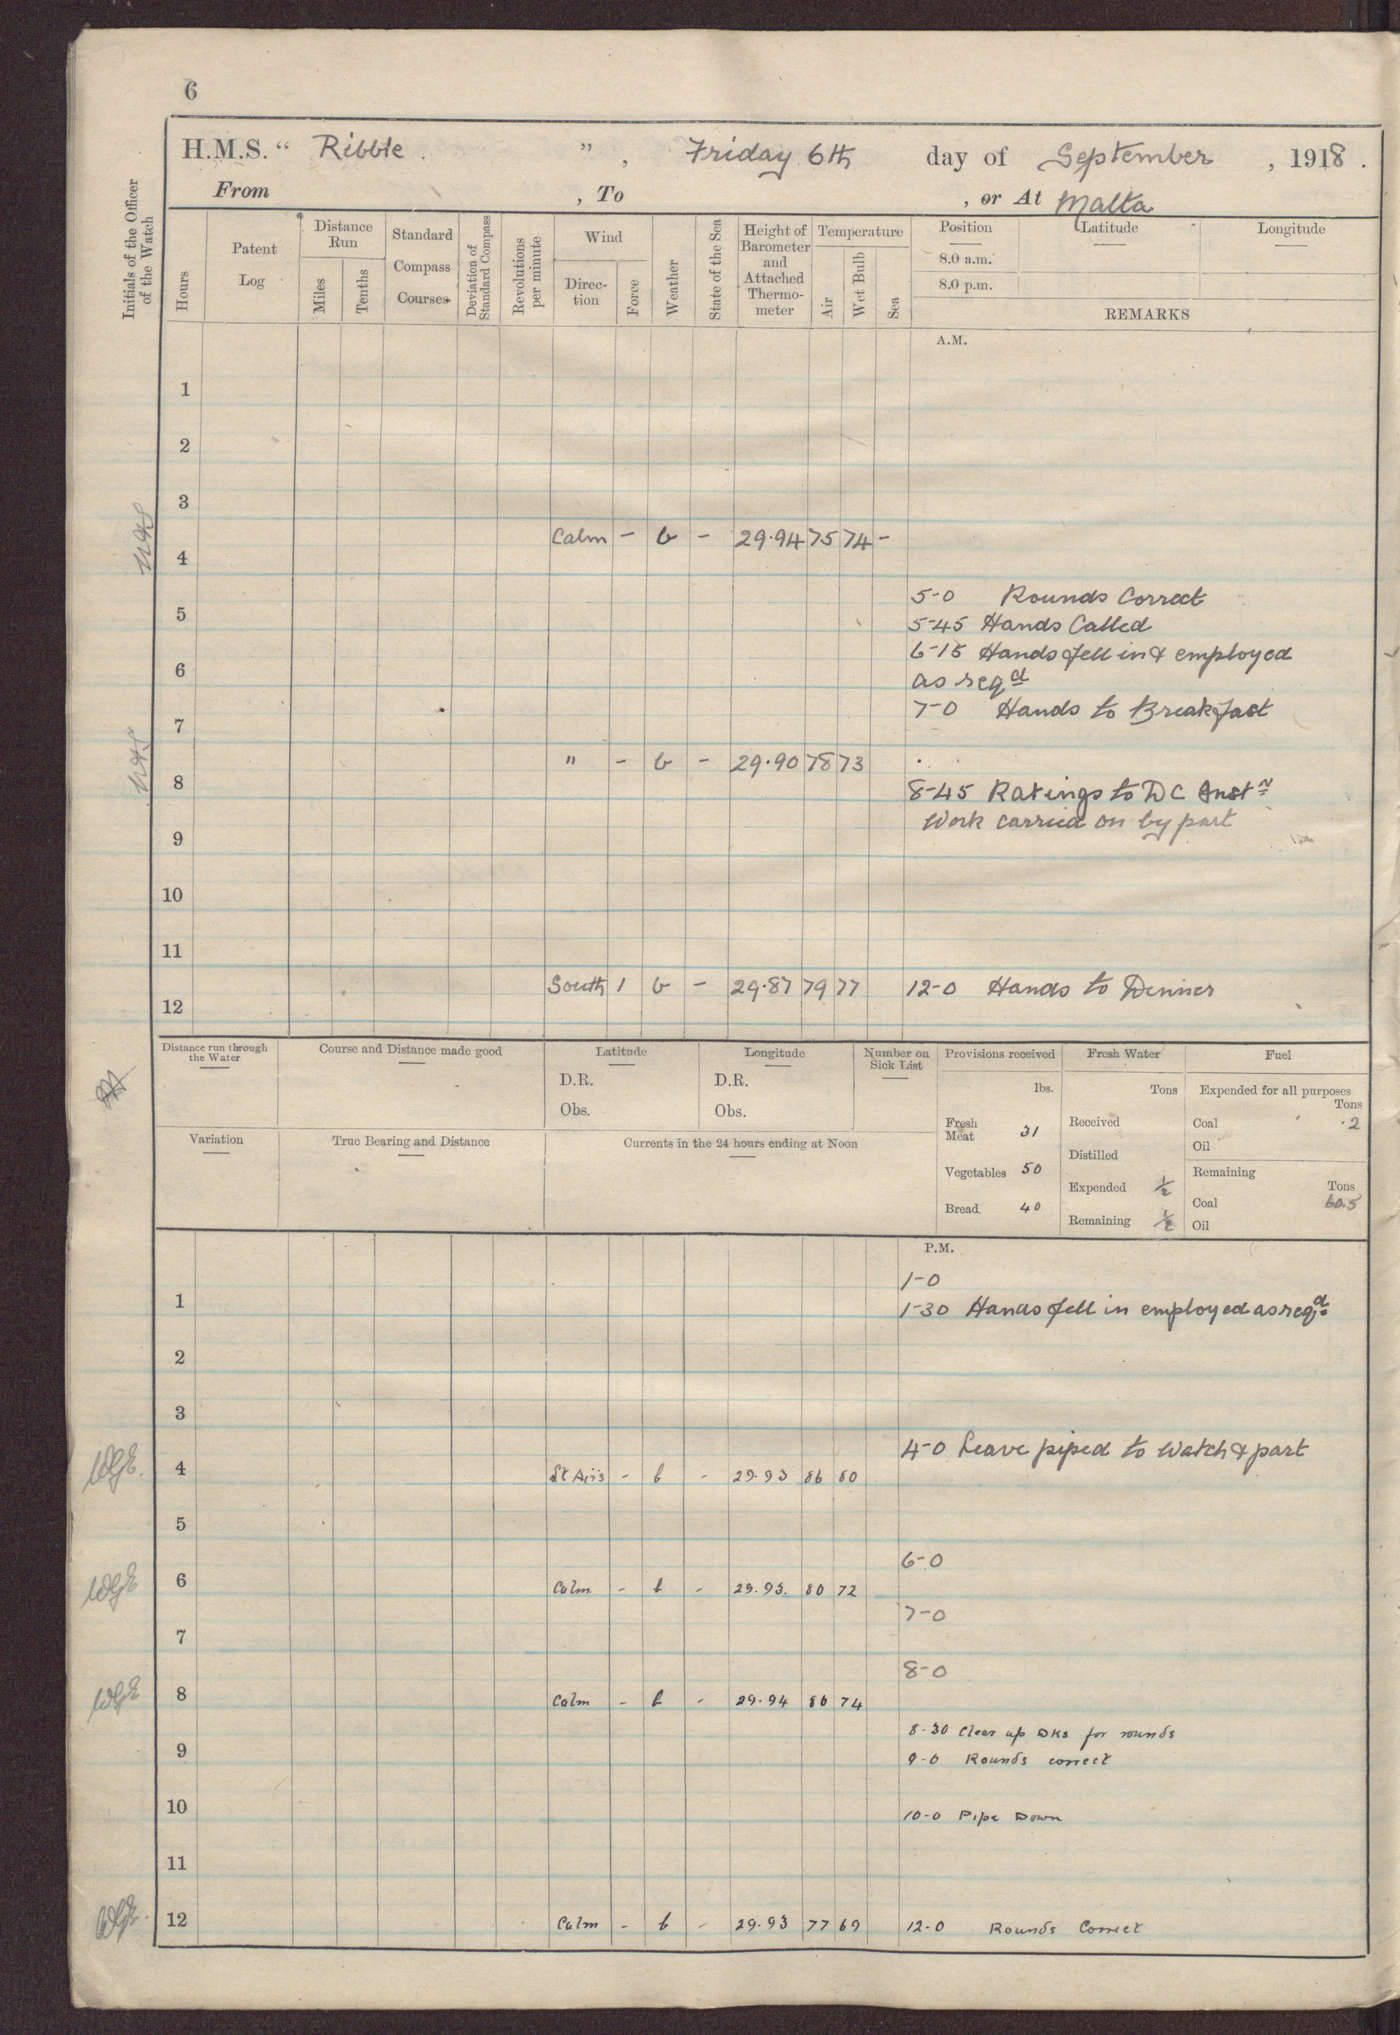 6
H.M.S. “ Ribble ” , Friday 6th day of September , 1918 .
From , To , or At Malta
Initials of the Officer of the Watch
Hours
Patent Log
Distance Run
Miles
Tenths
Standard Compass Courses
Deviation of Standard Compass
Revolutions per minute
Wind
Direction
Force
Weather
State of the Sea
Height of Barometer and Attached Thermometer
Temperature
Air
Wet Bulb
Sea
Position
8.0 a.m.
8.0 p.m.
Latitude
Longitude
REMARKS
A.M.
1
2
3
4 Calm – b – 29.94 75 74 –
5-0 Rounds Correct
5
5-45 Hands Called
6-15 Hands fell in & employed
6
as reqd
7-0 Hands to Breakfast
7
8 " – b – 29.90 78 73
8-45 Ratings to DC Instn
Work carried on by part
9
10
11
12 South 1 b – 29.87 79 77 12-0 Hands to Dinner
Distance run through the Water
Course and Distance made good
Latitude
D.R.
Obs.
Longitude
D.R.
Obs.
Number on Sick List
Provisions received
lbs.
Fresh Meat 31
Vegetables 50
Bread 40
Fresh Water
Tons
Received
Distilled
Expended ½
Remaining ½
Fuel
Expended for all purposes
Tons
Coal .2
Oil
Remaining
Tons
Coal 60.5
Oil
Variation
True Bearing and Distance
Currents in the 24 hours ending at Noon
P.M.
1-0
1
1-30 Hands fell in employed as reqd
2
3
4-0 Leave piped to Watch & part
WGE. 4 – b – 29.93 86 80
5
6-0
WGE 6 Calm – b – 29.93. 80 72
7-0
7
8-0
WGE 8 Calm – b – 29.94 80 74
8-30 Clear up DKs for rounds
9
9-0 Rounds correct
10
10-0 Pipe Down
11
WGE. 12 Calm – b – 29.93 77 69 12-0 Rounds Correct